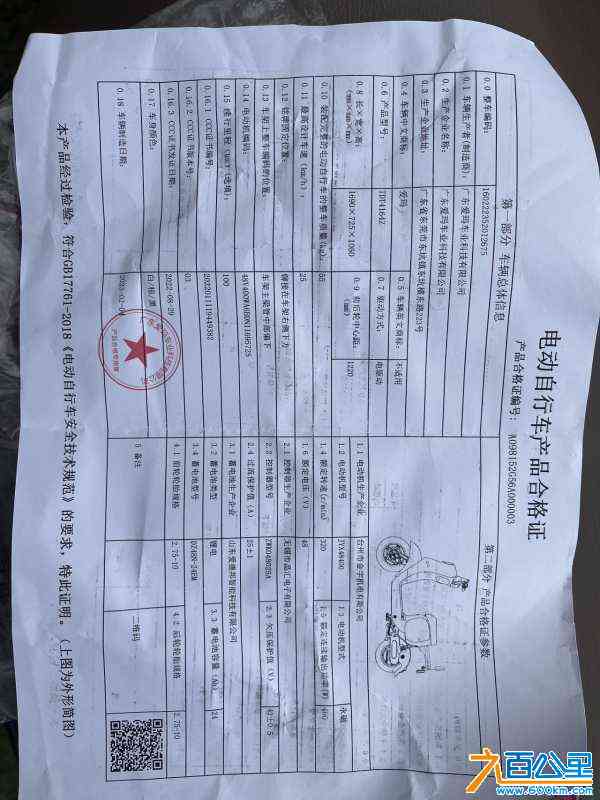 电动自行车产品合格证
产品合格证编号:
第一部分 车辆总体信息
0.0 整车编码: 160222352012675
0.1 车辆生产厂(制造商): 广东爱玛车业科技有限公司
0.2 生产企业名称: 广东爱玛车业科技有限公司
0.3 生产企业地址: 广东省东莞市东坑镇东坑横东路221号
0.4 车辆中文商标: 爱玛 0.5 车辆英文商标: 不适用
0.6 产品型号: 0.7 驱动方式: 电驱动
0.8 长×宽×高: (mm×mm×mm) 1690×725×1080 0.9 前后轮中心距: (mm) 1220
0.10 装配完整的电动自行车的整车质量(kg): 55
0.11 最高设计车速(km/h): 25
0.12 铭牌固定位置: 铆接在车架右侧下方
0.13 车架上整车编码的位置: 车架主梁管中部偏下
0.14 电动机编码:
0.15 续行里程(km)(选填): 100
0.16.1 CCC证书编号: 2022011119449382
0.16.2 CCC证书版本号: 03
0.16.3 CCC证书发证日期: 2022-08-29
0.17 车身颜色: 白/银/黑
0.18 车辆制造日期:
产品合格专用章
第二部分 产品合格证参数
1.1 电动机生产企业 台州市金宇机电有限公司
1.2 电动机型号 1.3 电动机型式 永磁
1.4 额定转速(r/min) 320 1.5 额定连续输出功率(W) 400
1.6 额定电压(V) 48
2.1 控制器生产企业 无锡市晶汇电子有限公司
2.2 控制器型号 2.3 欠压保护值(V) 42±0.5
2.4 过流保护值(A) 25±1
3.1 蓄电池生产企业 山东爱德邦智能科技有限公司
3.2 蓄电池类型 锂电 3.3 蓄电池容量(Ah) 24
3.4 蓄电池型号
4.1 前轮轮胎规格 2.75-10 4.2 后轮轮胎规格 2.75-10
5 备注 二维码
本产品经过检验,符合GB17761-2018《电动自行车安全技术规范》的要求,特此证明。(上图为外形简图)
六百公里
www.600km.com